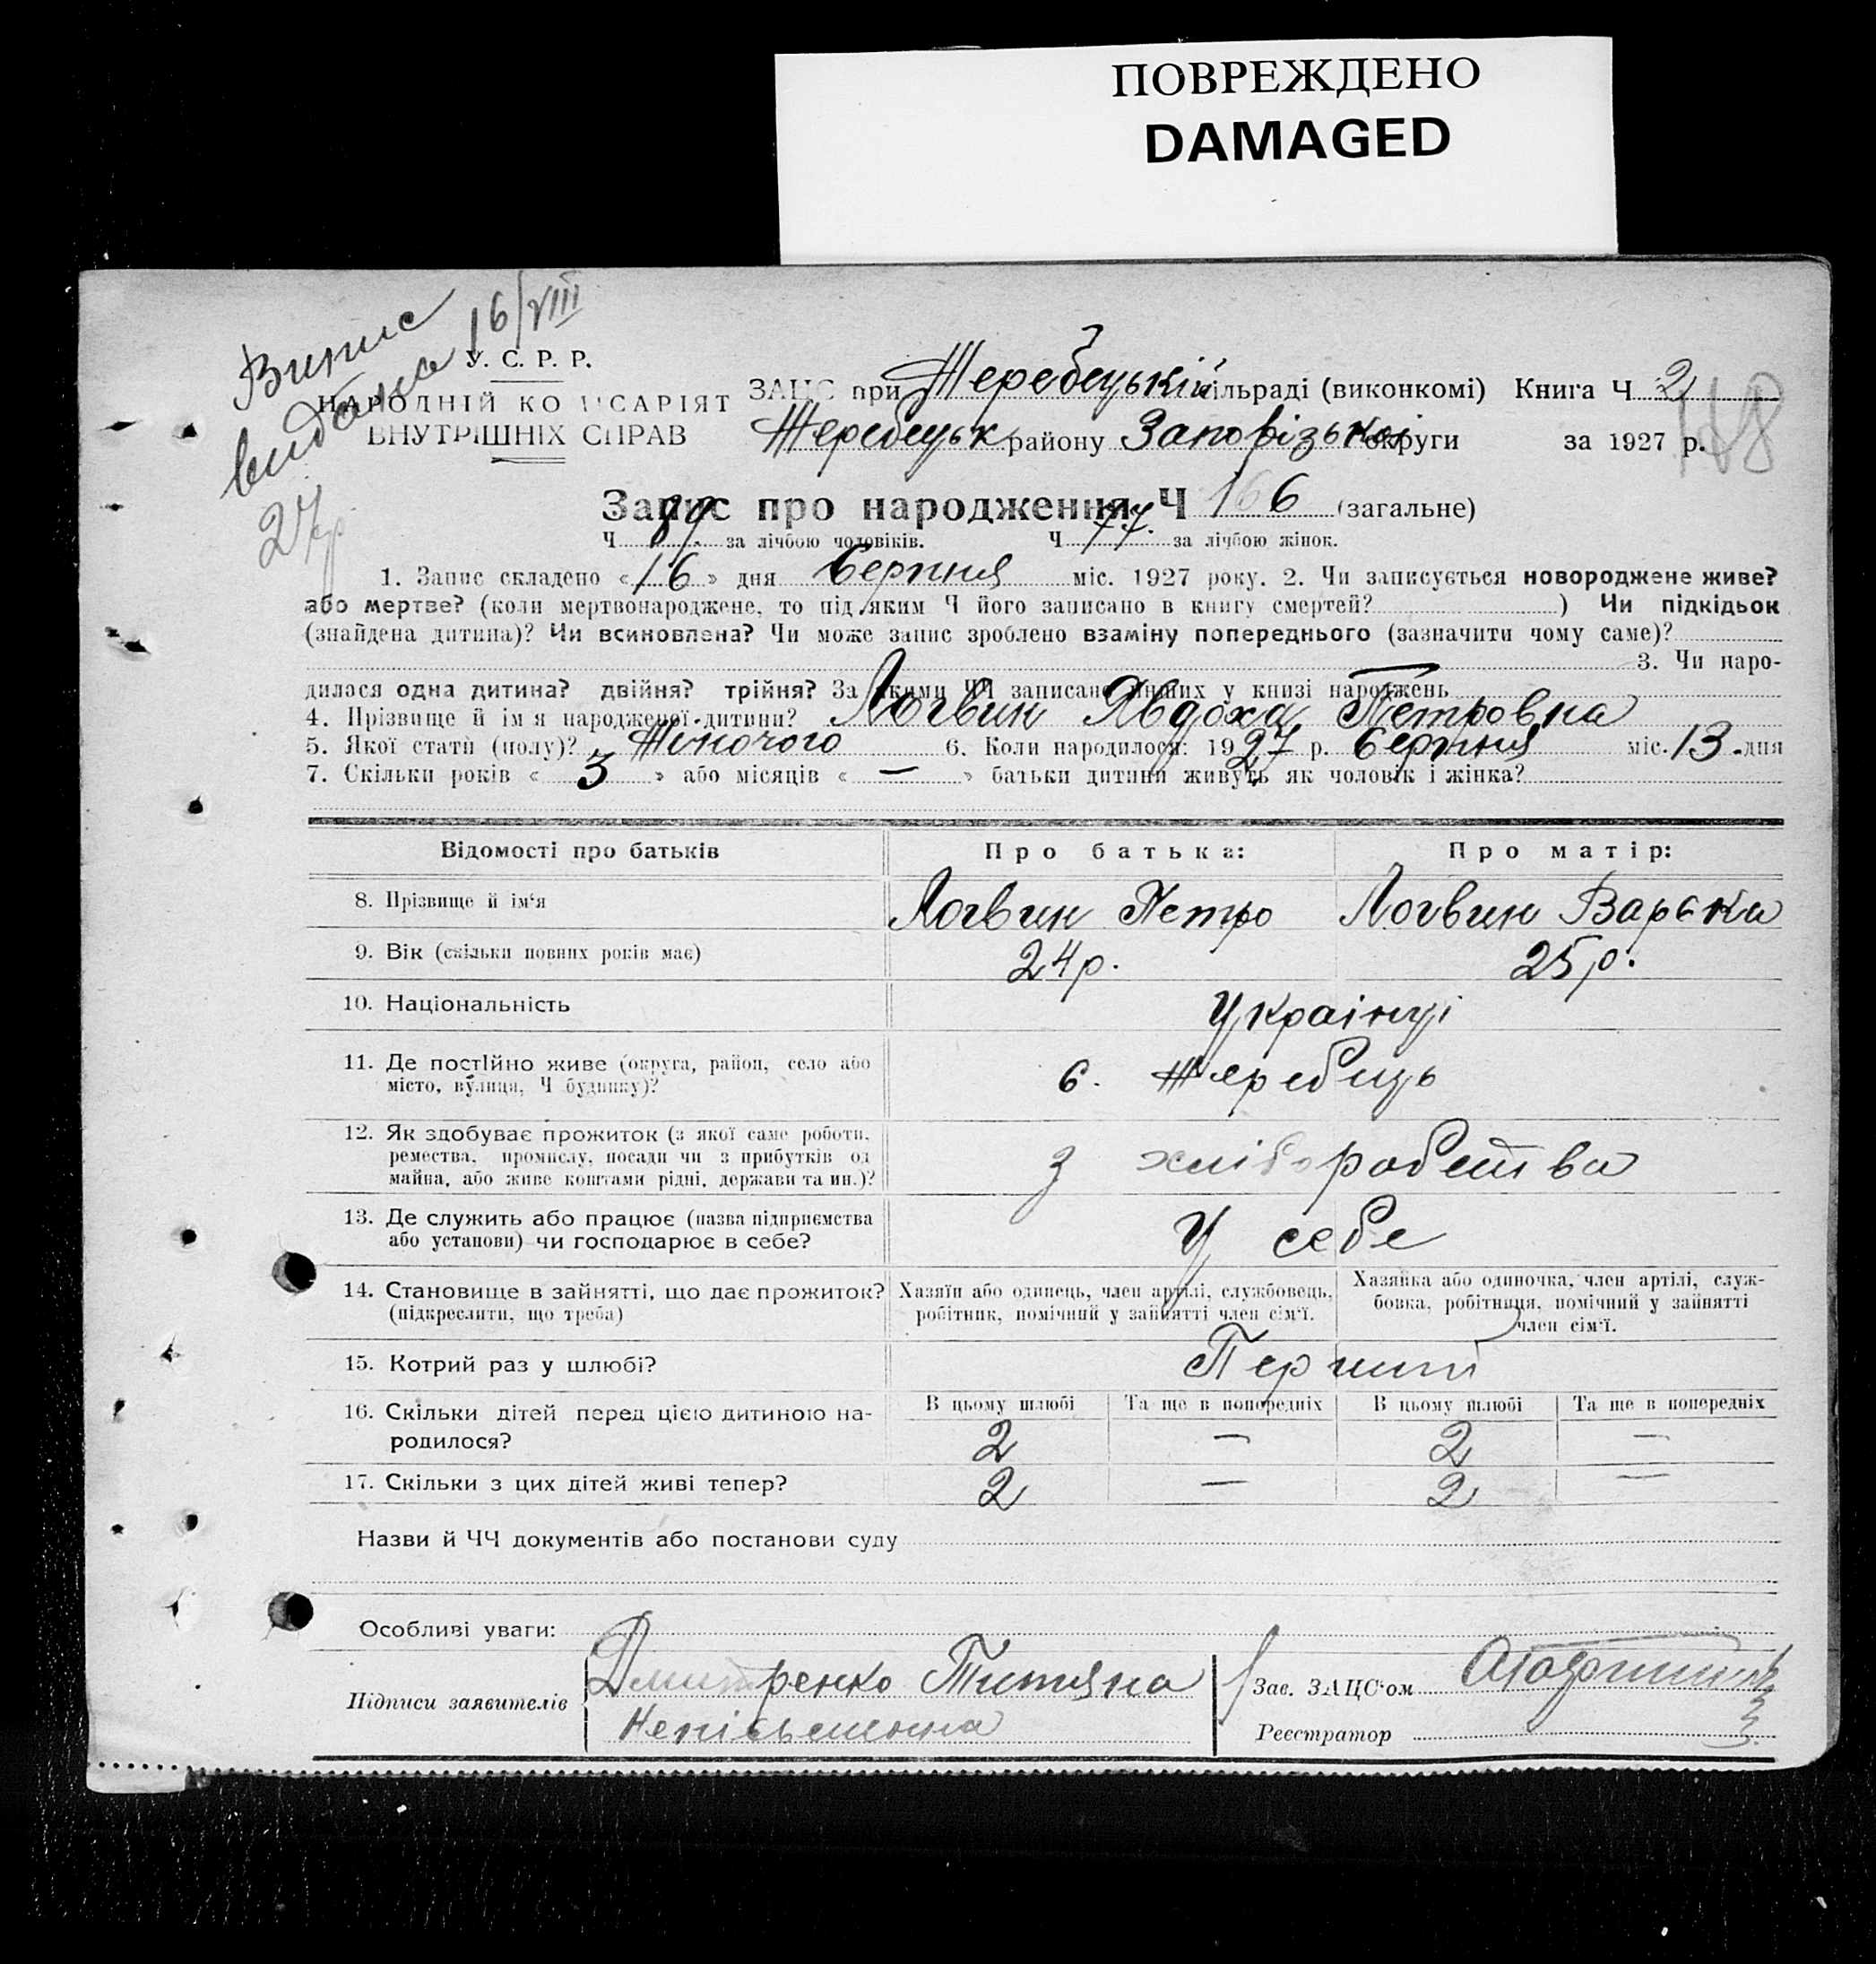 ПОВРЕЖДЕНО
DAMAGED
Випис
видано 16/VIII
27 р.
У. С. Р. Р.
НАРОДНІЙ КОМІСАРІЯТ
ВНУТРІШНІХ СПРАВ
ЗАЦС при Жеребецькій сільраді (виконкомі) Книга Ч 2
Жеребецьк району Запорізької округи за 1927 р.
148
Запис про народження Ч 166 (загальне)
Ч 89 за лічбою чоловіків. Ч 77. за лічбою жінок.
1. Запис складено «16» дня Серпня міс. 1927 року. 2. Чи записується новороджене живе?
або мертве? (коли мертвонароджене, то під яким Ч його записано в книгу смертей? ) Чи підкідьок
(знайдена дитина)? Чи всиновлена? Чи може запис зроблено взаміну попереднього (зазначити чому саме)?
3. Чи наро-
дилася одна дитина? двійня? трійня? За якими ЧЧ записано инших у книзі народжень
4. Прізвище й ім'я народженої дитини? Логвин Явдоха Петровна
5. Якої статі (полу)? Жіночого 6. Коли народилося: 1927 р. Серпня міс. 13 дня
7. Скільки років « 3 » або місяців « — » батьки дитини живуть як чоловік і жінка?
Відомості про батьків Про батька: Про матір:
8. Прізвище й ім'я Логвин Петро Логвин Варька
9. Вік (скільки повних років має) 24 р. 25 р.
10. Національність Українці
11. Де постійно живе (округа, район, село або
місто, вулиця, Ч будинку)? с. Жеребець
12. Як здобуває прожиток (з якої саме роботи,
ремества, промислу, посади чи з прибутків од
майна, або живе коштами рідні, держави та ин.)? З хліборобства
13. Де служить або працює (назва підприємства
або установи) чи господарює в себе? У себе
14. Становище в зайнятті, що дає прожиток?
(підкреслити, що треба)
Хазяїн або одинець, член артілі, службовець,
робітник, помічний у зайнятті член сім'ї.
Хазяйка або одиночка, член артілі, служ-
бовка, робітниця, помічний у зайнятті
член сім'ї.
15. Котрий раз у шлюбі? Перший
16. Скільки дітей перед цією дитиною на-
родилося?
В цьому шлюбі Та ще в попередніх В цьому шлюбі Та ще в попередніх
2 — 2 —
17. Скільки з цих дітей живі тепер? 2 — 2 —
Назви й ЧЧ документів або постанови суду
Особливі уваги:
Підписи заявителів Дмитренко Титяна
Непісьменна
Зав. ЗАЦС'ом
Реєстратор